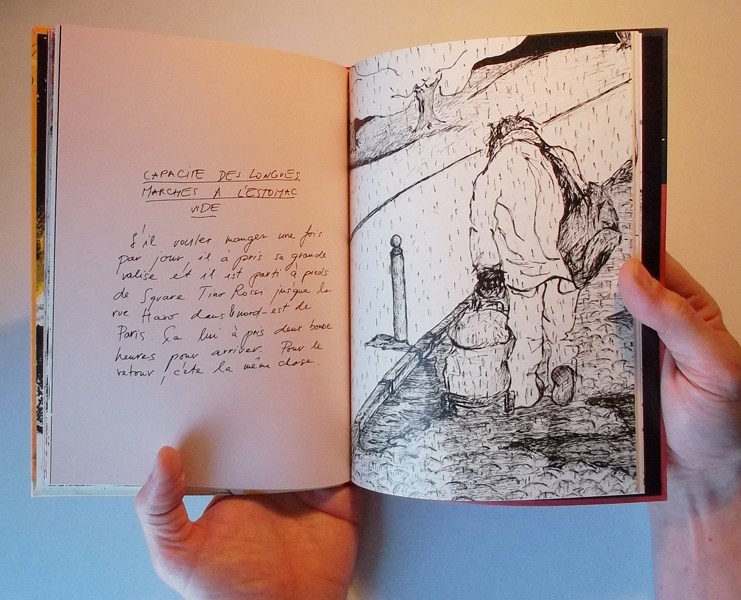 CAPACITE DES LONGUES
MARCHES A L'ESTOMAC
VIDE
S'il vouler manger une fois
par jour, il à pris sa grande
valise et il est parti à pieds
de Square Tino Rossi jusque la
rue Haxo dans le nord-est de
Paris. Ça lui à pris deux bonne
heures pour arriver. Pour le
retour, c'éte la même chose.